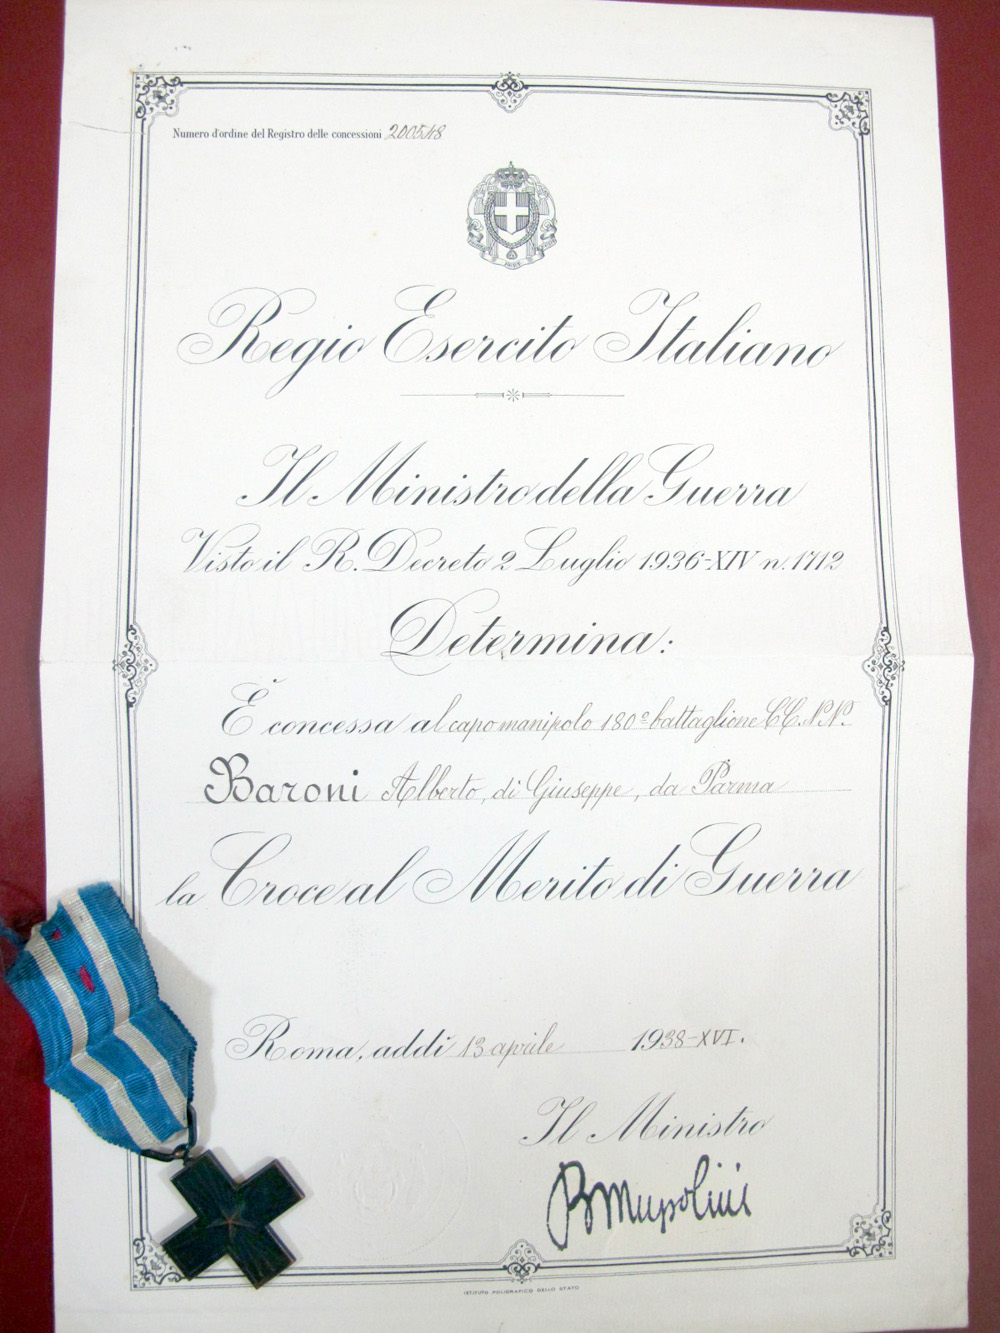 Numero d'ordine del Registro delle concessioni 200548
FERT
Regio Esercito Italiano
Il Ministro della Guerra
Visto il R. Decreto 2 Luglio 1936-XIV n. 1712
Determina:
È concessa al capo manipolo 180º battaglione CC.NN.
Baroni Alberto, di Giuseppe, da Parma
la Croce al Merito di Guerra
Roma, addì 13 aprile 1938-XVI.
Il Ministro
BMussolini
ISTITUTO POLIGRAFICO DELLO STATO